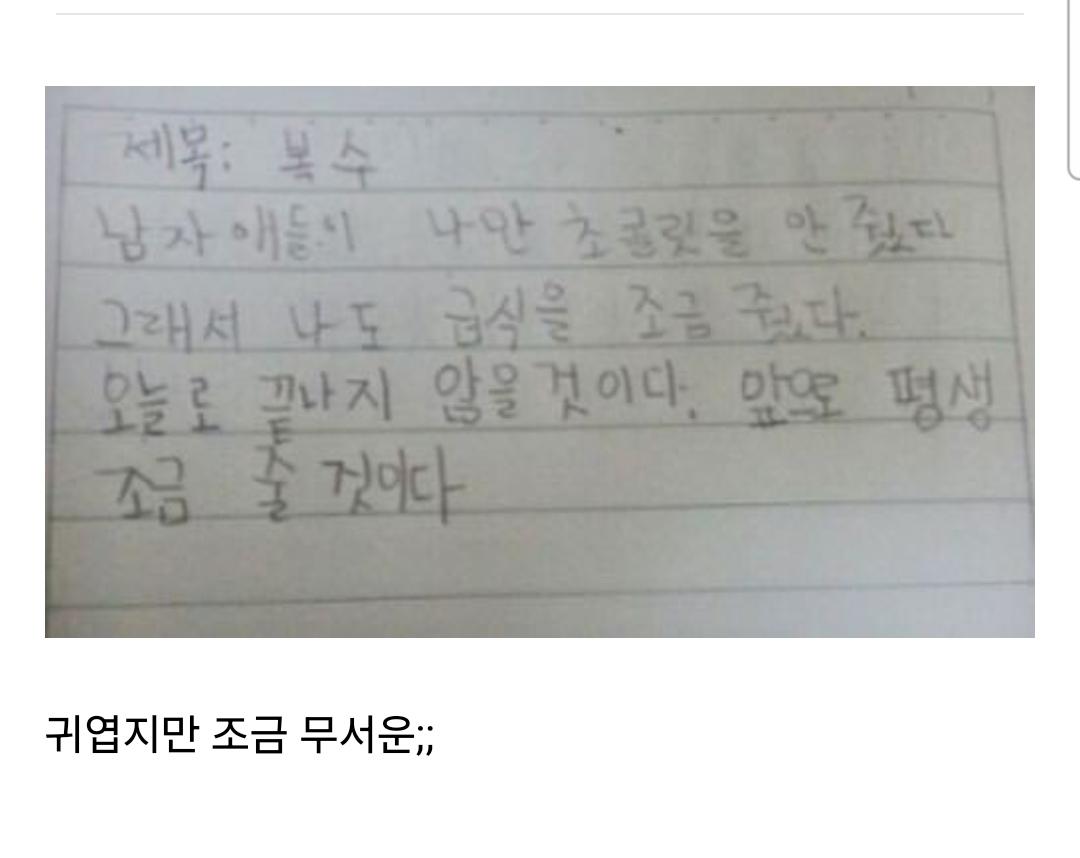 제목: 복수
남자애들이 나만 초콜릿을 안 줬다
그래서 나도 급식을 조금 줬다.
오늘로 끝나지 않을것이다. 앞으로 평생
조금 줄 것이다
귀엽지만 조금 무서운;;